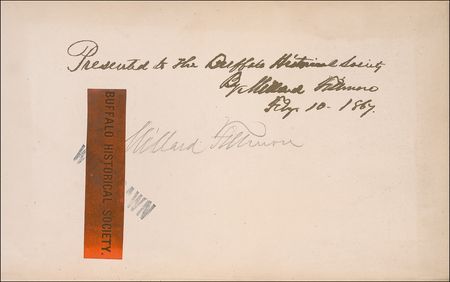 Presented to the Buffalo Historical Society
By Millard Fillmore
Feby. 10. 1867.
Millard Fillmore
BUFFALO HISTORICAL SOCIETY.